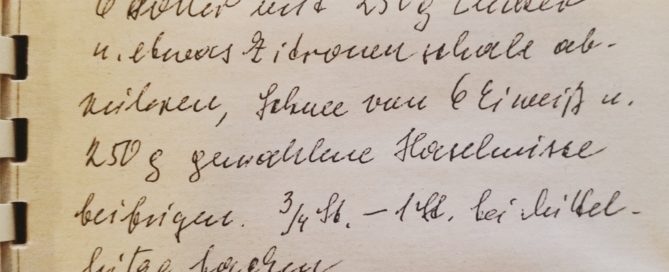 6 Dotter mit 250 g Zucker
u. etwas Zitronenschale ab-
rühren, Schnee von 6 Eiweiß u.
250 g gemahlene Haselnüsse
beifügen. 3/4 St. – 1 St. bei Mittel-
hitze backen